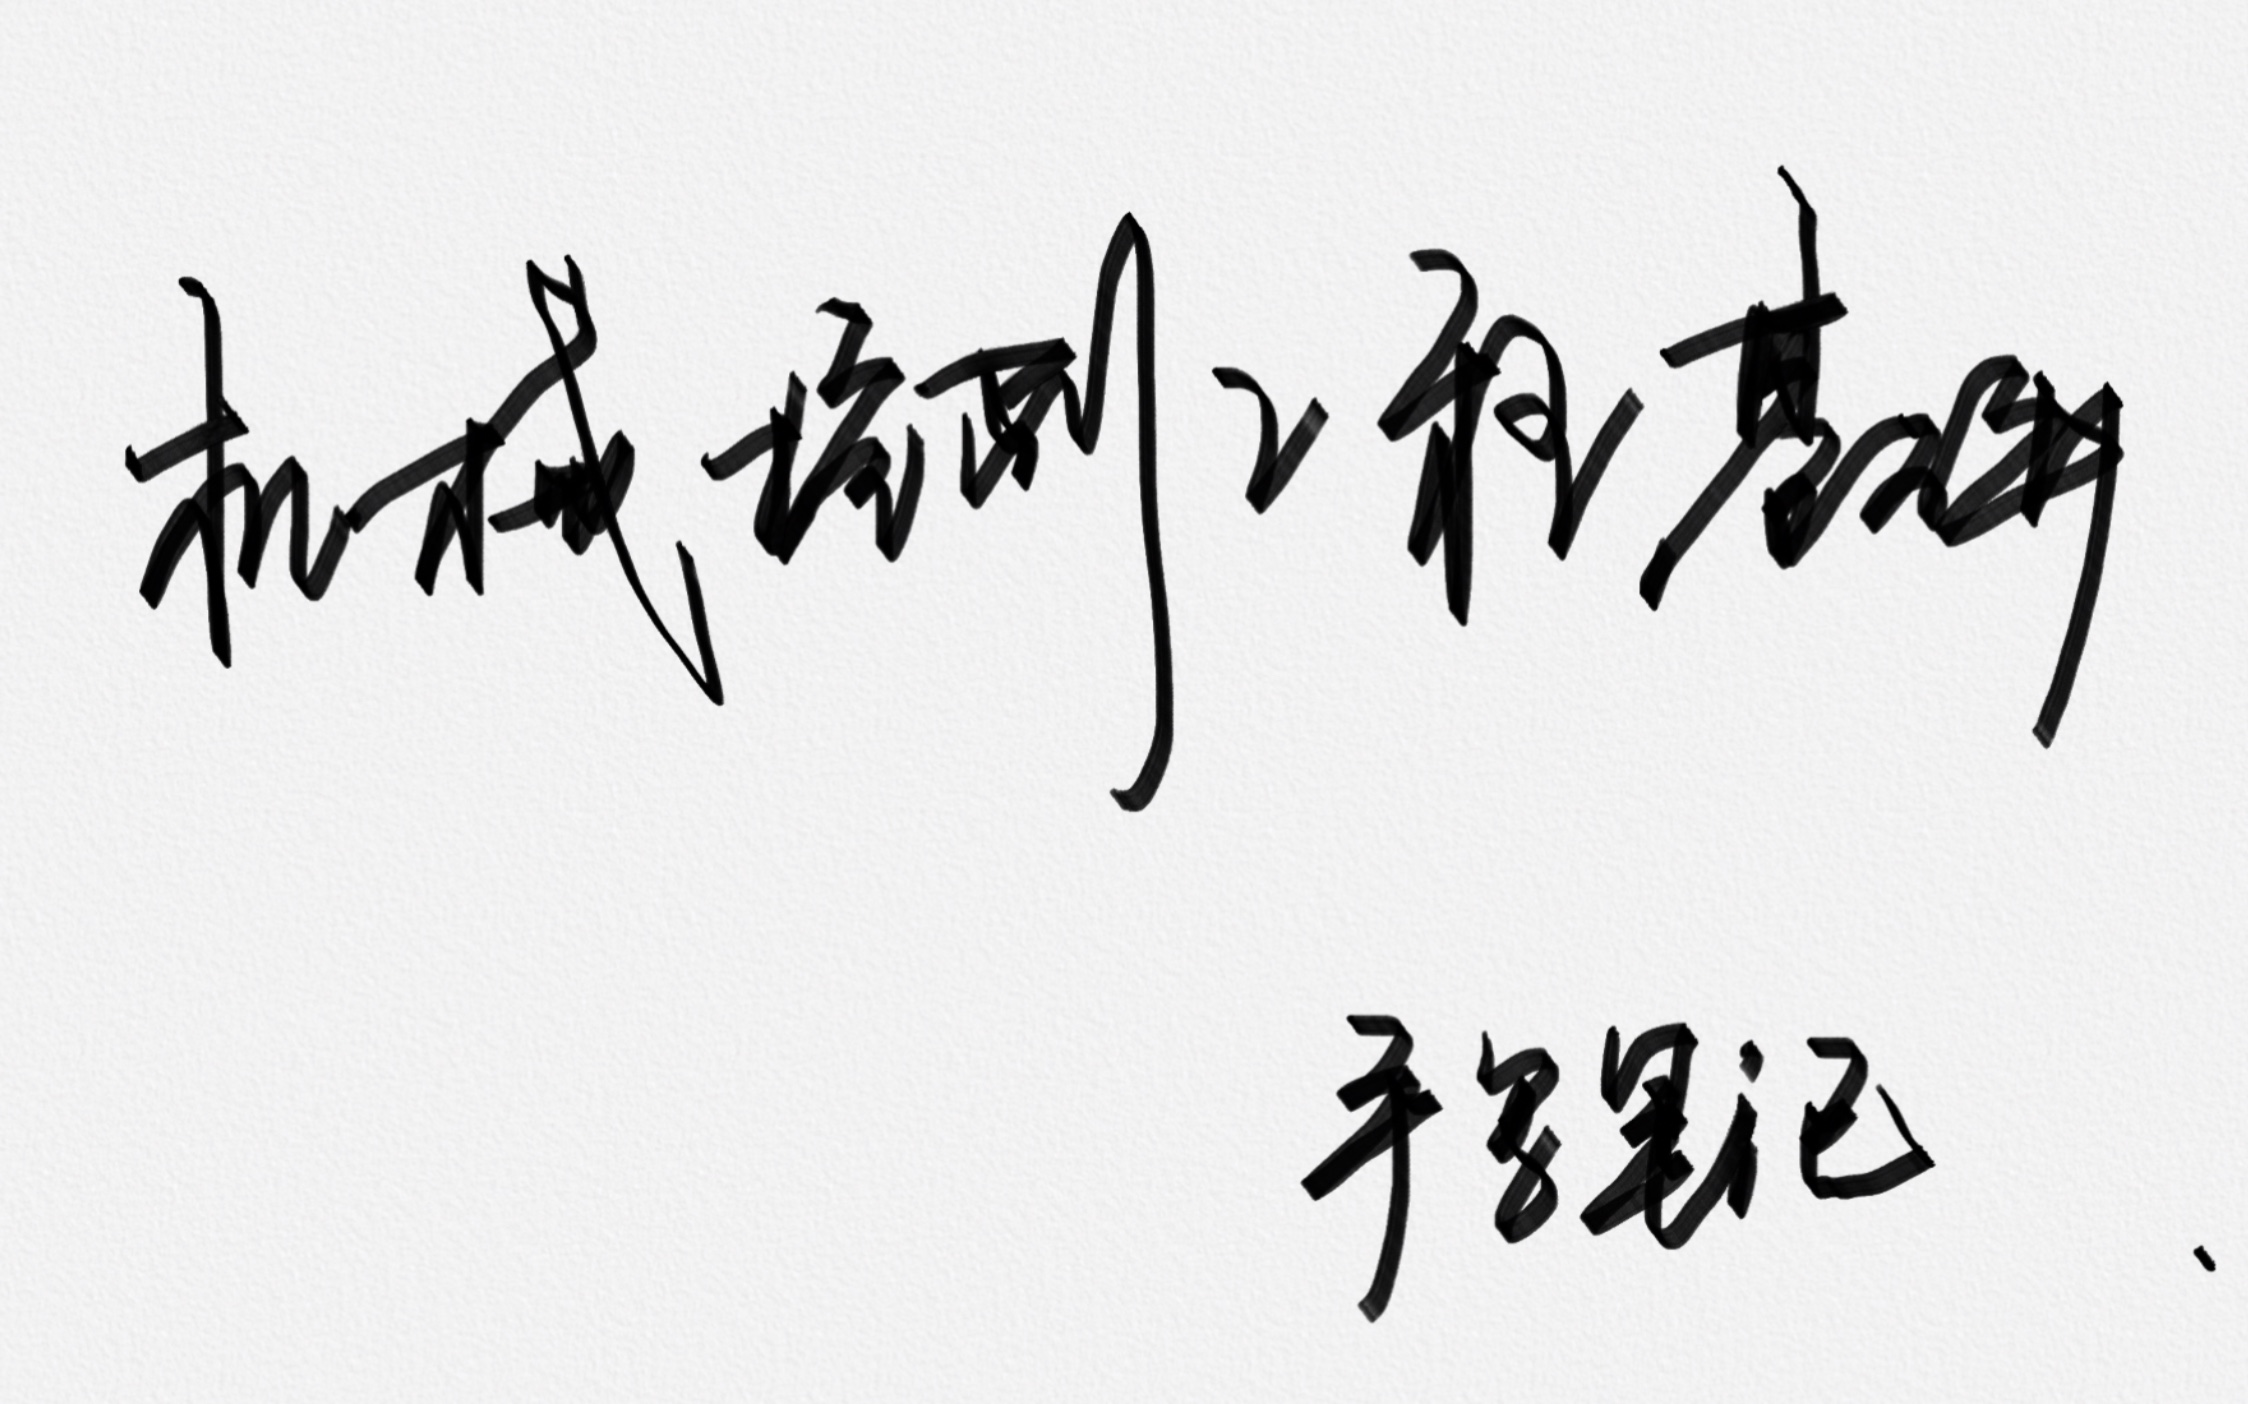 机械控制工程基础
手写笔记